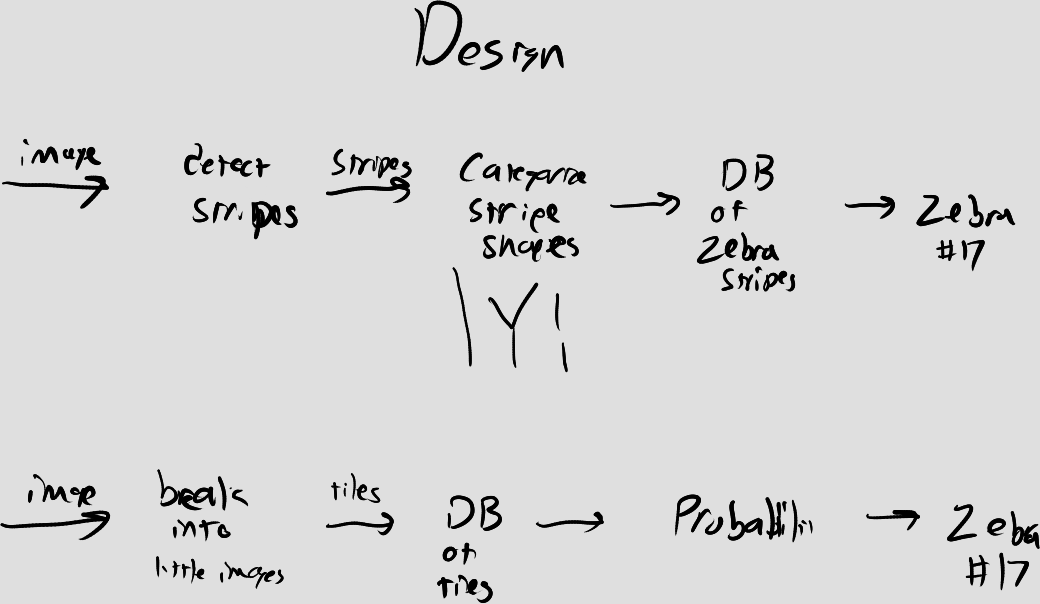 Design
image
detect
stripes
stripes
Categorize
stripe
shapes
DB
of
Zebra
stripes
Zebra
#17
image
break
into
little images
tiles
DB
of
tiles
Zebra
#17